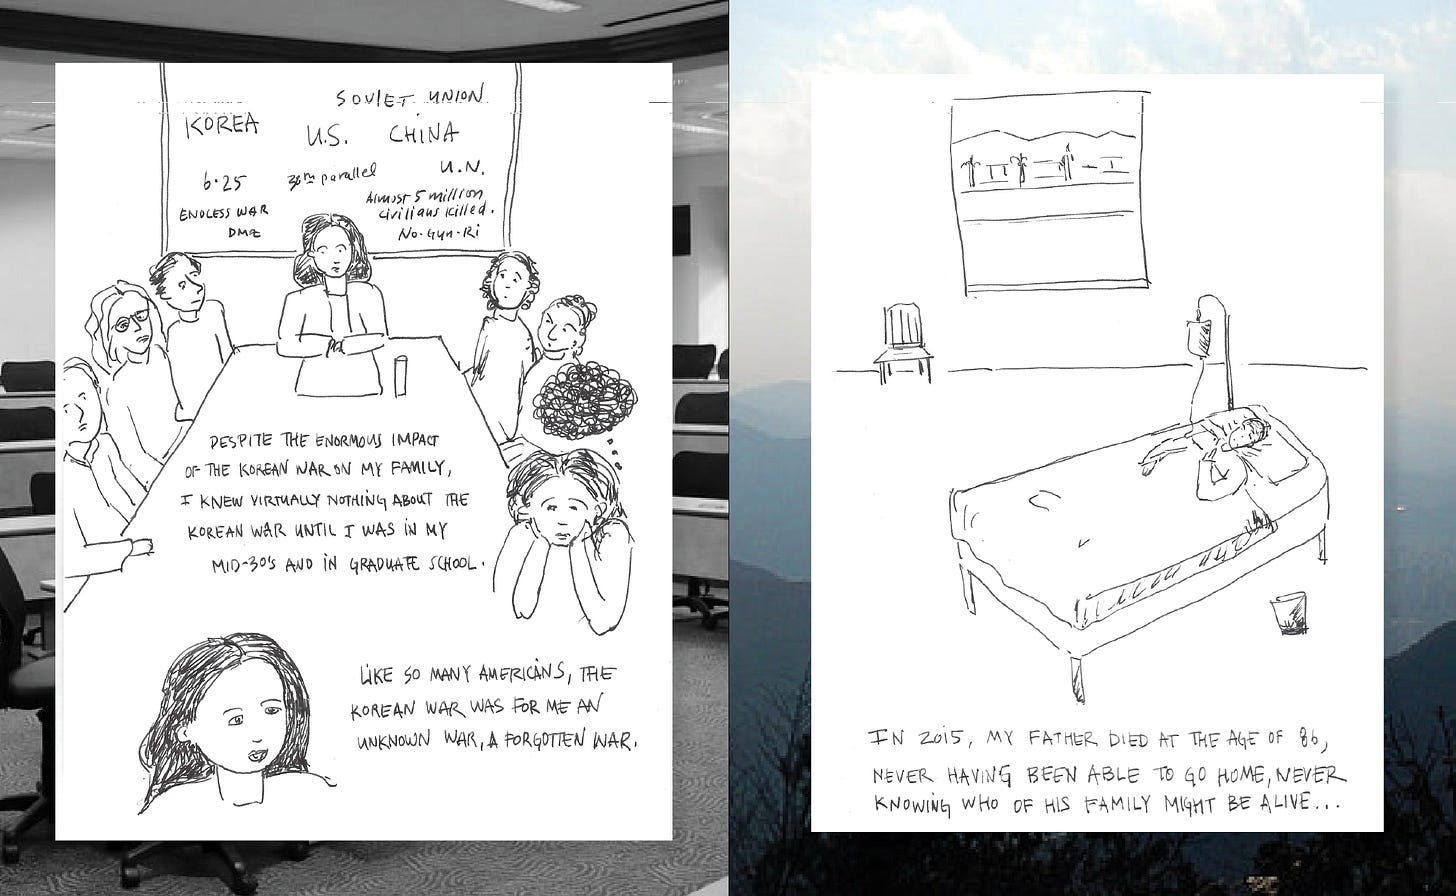 SOVIET UNION
KOREA
U.S. CHINA
6·25
38th parallel
U.N.
ENDLESS WAR
DMZ
Almost 5 million
civilians killed.
No-Gun-Ri
DESPITE THE ENORMOUS IMPACT
OF THE KOREAN WAR ON MY FAMILY,
I KNEW VIRTUALLY NOTHING ABOUT THE
KOREAN WAR UNTIL I WAS IN MY
MID-30'S AND IN GRADUATE SCHOOL.
LIKE SO MANY AMERICANS, THE
KOREAN WAR WAS FOR ME AN
UNKNOWN WAR, A FORGOTTEN WAR.
IN 2015, MY FATHER DIED AT THE AGE OF 86,
NEVER HAVING BEEN ABLE TO GO HOME, NEVER
KNOWING WHO OF HIS FAMILY MIGHT BE ALIVE...